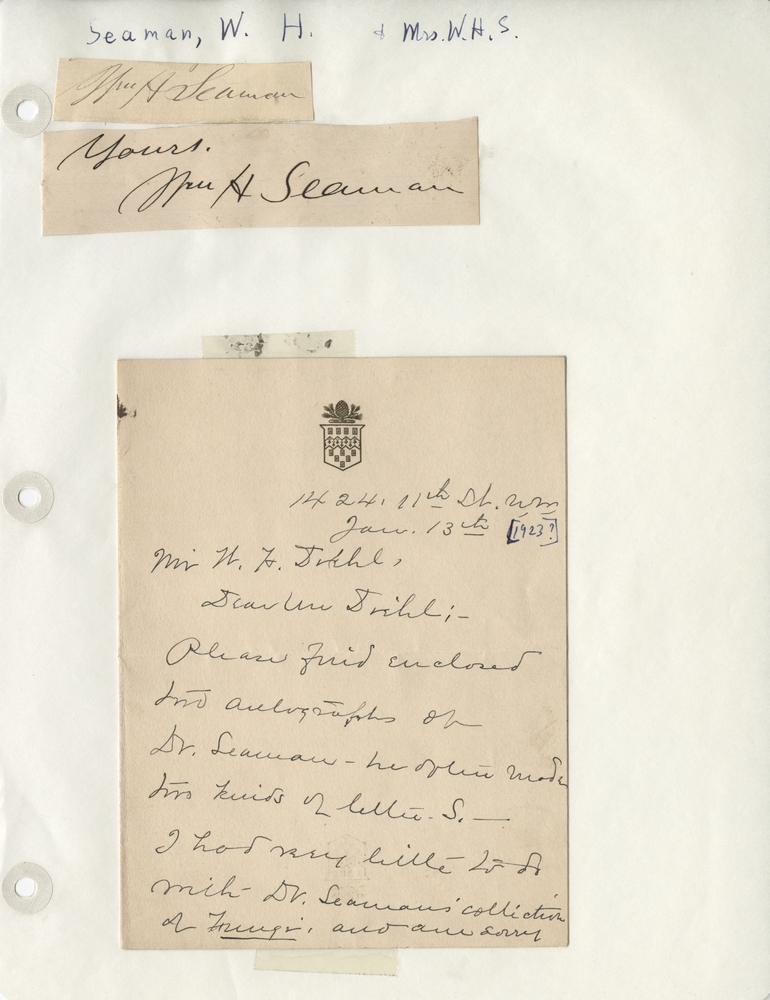 Seaman, W. H. & Mrs. W.H.S.
Wm H Seaman
Yours.
Wm H Seaman
1424. 11th St. NW
Jan. 13th [1923?]
Mr W. H. Diehl,
Dear Mr Diehl;-
Please find enclosed
two autographs of
Dr. Seaman - he often made
two kinds of letter S. —
I had very little to do
with Dr. Seaman's collection
of Fungi, and am sorry